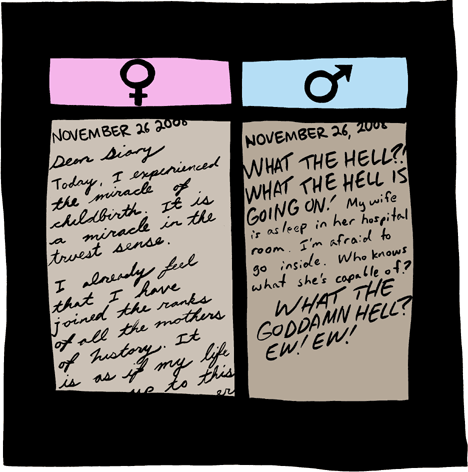 NOVEMBER 26 2008
Dear Diary
Today, I experienced
the miracle of
childbirth. It is
a miracle in the
truest sense.
I already feel
that I have
joined the ranks
of all the mothers
of history. It
is as if my life
up to this
er
NOVEMBER 26, 2008
WHAT THE HELL?!
WHAT THE HELL IS
GOING ON! My wife
is asleep in her hospital
room. I'm afraid to
go inside. Who knows
what she's capable of?
WHAT THE
GODDAMN HELL?
EW! EW!